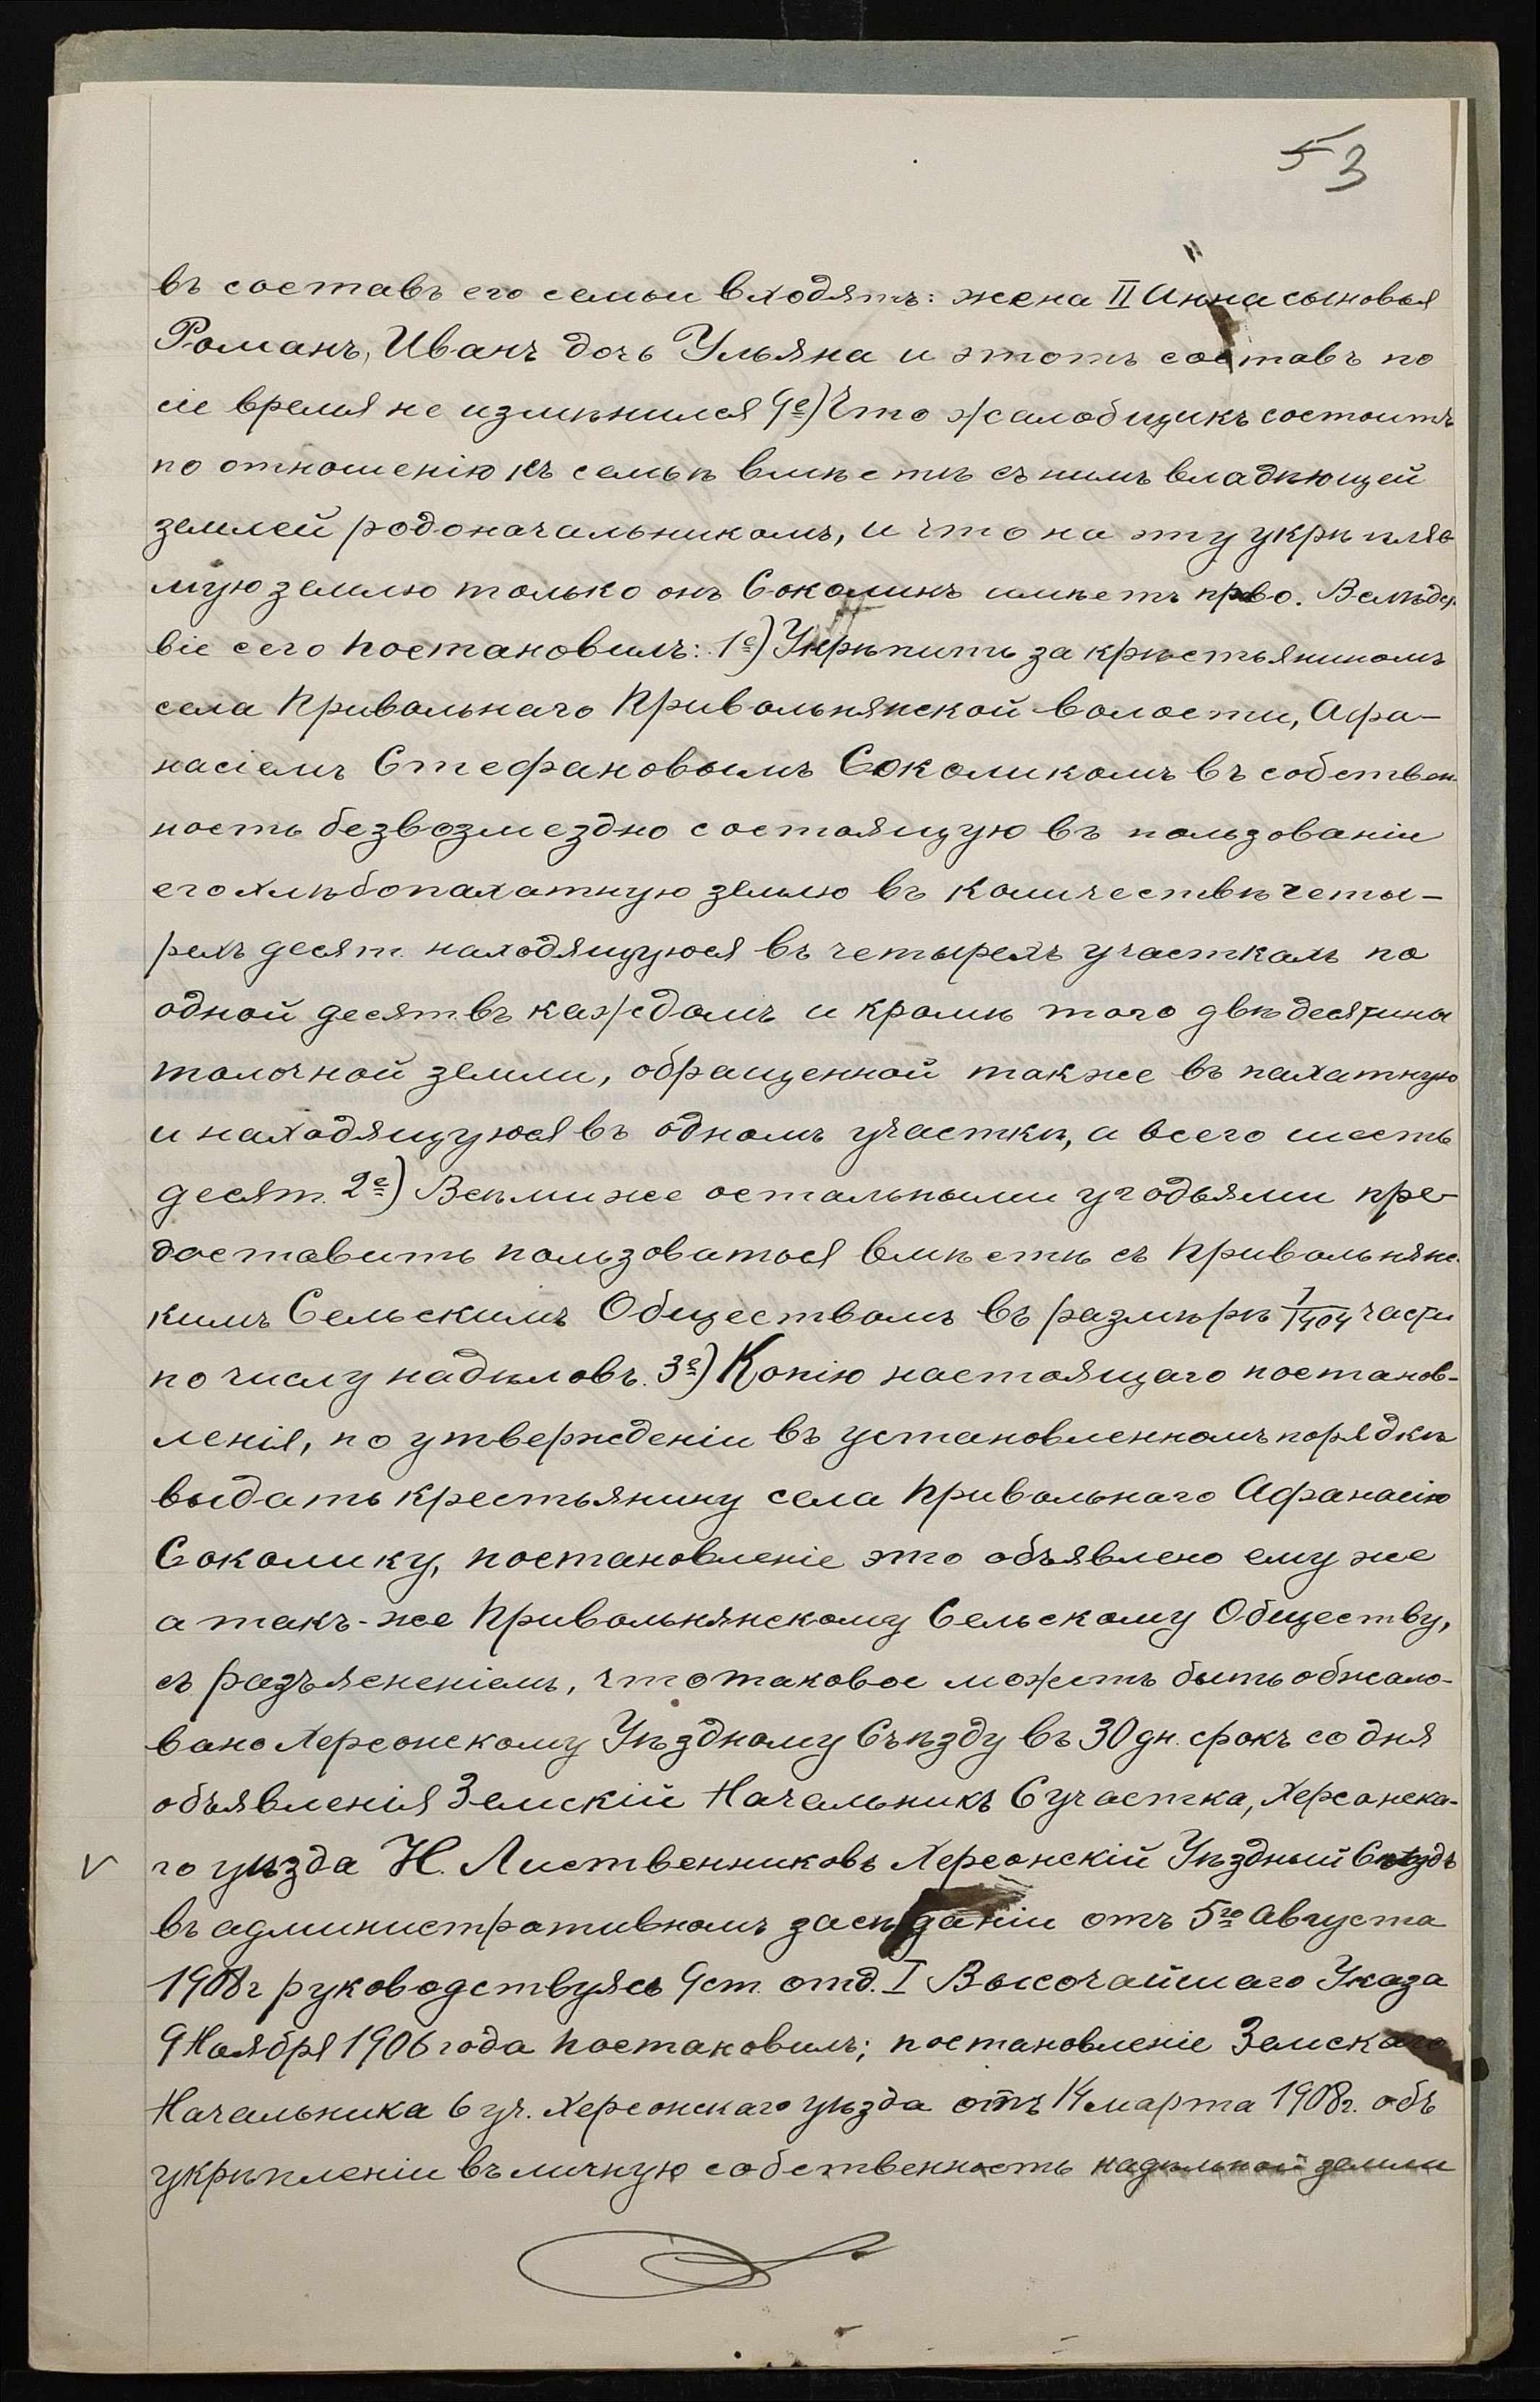 53
въ составъ его семьи входятъ: жена II Анна сыновья
Романъ, Иванъ дочь Ульяна и этотъ составъ по
сіе время не измѣнился 9е) Что жалобщикъ состоитъ
по отношенію къ семьѣ вмѣстѣ съ нимъ владѣющей
землей родоначальникомъ, и что на эту укрѣпляе
мую землю только онъ Соколикъ имѣетъ прво. Вслѣдст
віе сего постановилъ: 1е) Укрѣпить за крѣстьяниномъ
села Привольнаго Привольнянской волости, Афа-
насіемъ Стефановымъ Соколикомъ въ собствен-
ность безвозмездно состоящую въ пользованіи
его хлѣбопахатную землю въ количествѣ четы-
рехъ десят. находящуюся въ четырехъ участкахъ по
одной десят. въ каждомъ и кромѣ того двѣ десятины
толочной земли, обращенной также въ пахатную
и находящуюся въ одномъ участкѣ, а всего шесть
десят. 2е) Всѣми же остальными угодьями пре-
доставить пользоваться вмѣстѣ съ Привольнянс-
кимъ Сельскимъ Обществомъ въ размѣрѣ 1/1404 части
по числу надѣловъ. 3е) Копію настоящаго постанов-
ленія, по утвержденіи въ установленномъ порядкѣ
выдать крестьянину села Привольнаго Афанасію
Соколику, постановленіе это объявлено ему же
а такъ-же Привольнянскому Сельскому Обществу,
съ разъясненіемъ, что таковое можетъ быть обжало-
вано Херсонскому Уѣздному Съѣзду въ 30 дн. срокъ со дня
объявленія Земскій Начальникъ 6 участка, Херсонска-
v го уѣзда Н. Лиственниковъ Херсонскій Уѣздный Съѣздъ
въ административномъ засѣданіи отъ 5го Августа
1908 г руководствуясь 9 ст. отд. I Высочайшаго Указа
9 Ноября 1906 года постановилъ; постановленіе Земскаго
Начальника 6 уч. Херсонскаго уѣзда отъ 14 марта 1908 г. объ
укрѣпленіи въ личную собственность надѣльной земли